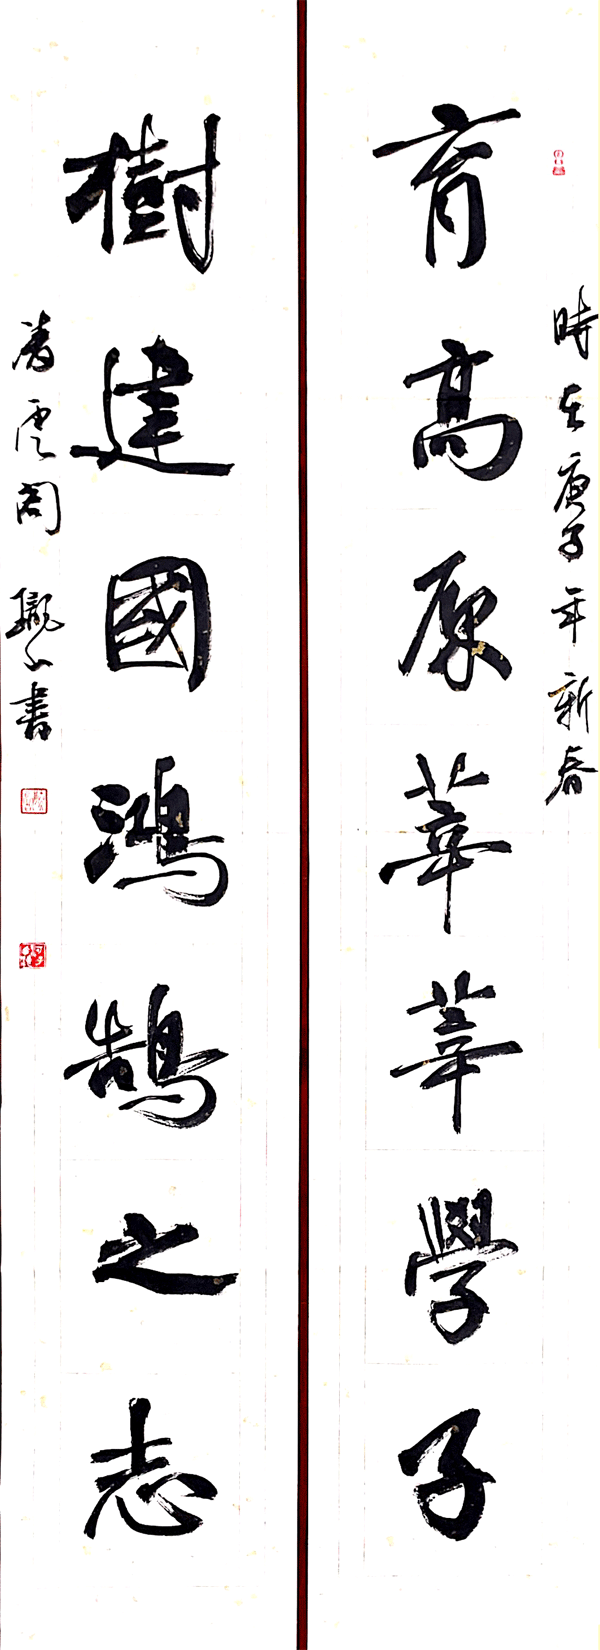 時在庚子年新春
育高原莘莘學子
樹建國鴻鵠之志
雲閣 書